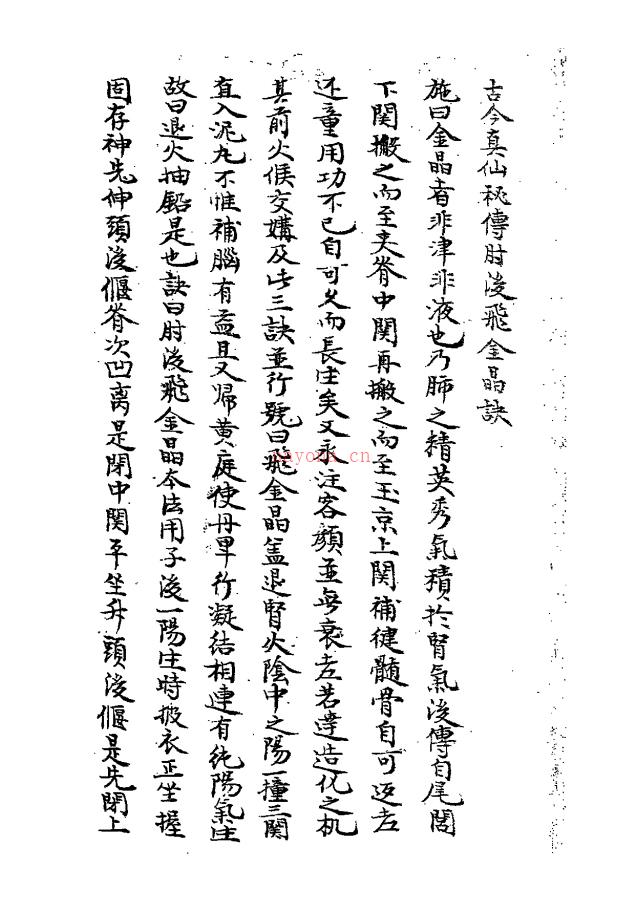 古今真仙秘傳肘後飛金晶訣
施曰金晶者非津非液也乃肺之精英秀氣積於腎氣後傳自尾閭
下関搬之而至夾脊中関再搬之而至玉京上関補健髓骨自可返老
还童用功不已自可久而長生矣又永注容顔並無衰老若達造化之机
其前火候交媾及此三訣並行號曰飛金晶盖退腎火陰中之陽一撞三関
直入泥丸不惟補腦有益且又歸黄庭使丹早行凝結相連有純陽氣生
故曰退火抽鉛是也訣曰肘後飛金晶本法用子後一陽生時披衣正坐握
固存神先伸頭後偃脊次凹离是閉中関平坐升頭後偃是先閉上
nayona.cn